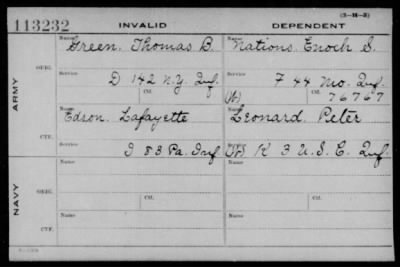 (3-16-3)
113232 INVALID DEPENDENT
Name Green. Thomas B. Name Nations. Enoch S.
ARMY
ORIG.
Service Ctf. Service Ctf.
D 142 N.Y. Inf. F 44 Mo. Inf.
(W) 76767
Name Edson. Lafayette Name Leonard. Peter
CTF.
I 83 Pa. Inf (W) K 3 U.S.C. Inf.
NAVY
Name Name
ORIG.
Ctf. Ctf.
Name Name
CTF.